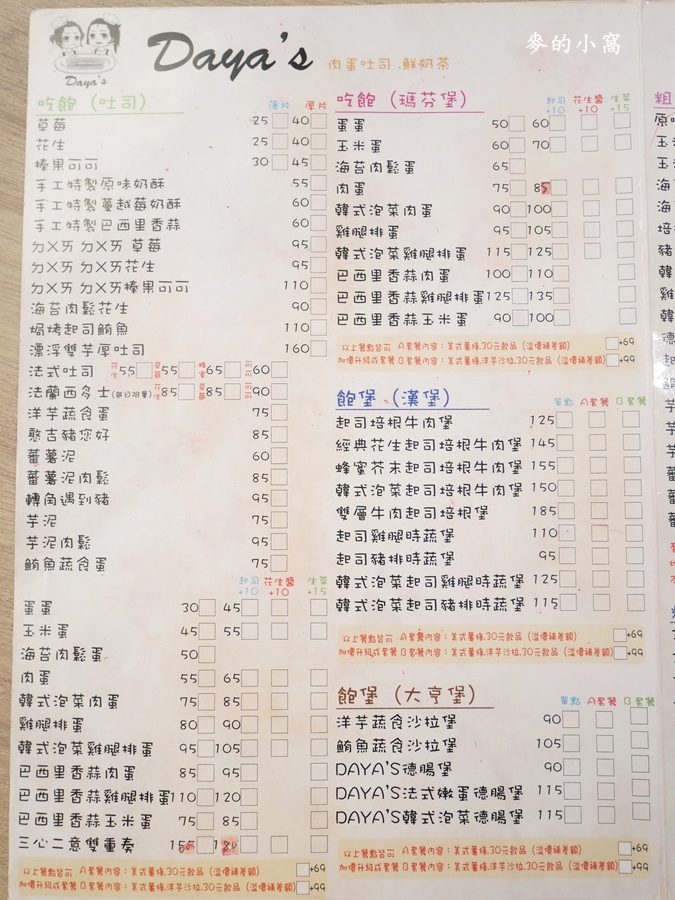 麥的小窩
Daya's
Daya's 肉蛋吐司.鮮奶茶
吃飽（吐司） 薄片 厚片
草莓 25 40
花生 25 40
榛果可可 30 45
手工特製原味奶酥 55
手工特製蔓越莓奶酥 60
手工特製巴西里香蒜 60
ㄉㄨㄞ ㄉㄨㄞ 草莓 95
ㄉㄨㄞ ㄉㄨㄞ花生 95
ㄉㄨㄞ ㄉㄨㄞ榛果可可 110
海苔肉鬆花生 90
焗烤起司鮪魚 110
漂浮雙芋厚吐司 160
法式吐司 花生55 草莓55 蜂蜜65 起司60
法蘭西多士(每日限量) 花生85 草莓85 起司90
洋芋蔬食蛋 75
憨吉豬您好 85
蕃薯泥 60
蕃薯泥肉鬆 85
轉角遇到豬 95
芋泥 75
芋泥肉鬆 95
鮪魚蔬食蛋 75
起司+10 花生醬+10 生菜+15
蛋蛋 30 45
玉米蛋 45 55
海苔肉鬆蛋 50
肉蛋 55 65
韓式泡菜肉蛋 75 85
雞腿排蛋 80 90
韓式泡菜雞腿排蛋 95 105
巴西里香蒜肉蛋 85 95
巴西里香蒜雞腿排蛋 110 120
巴西里香蒜玉米蛋 75 85
三心二意雙重奏
以上餐點皆可 A套餐內容：美式薯條.30元飲品（溢價補差額） +69
加價升級成套餐 B套餐內容：美式薯條.洋芋沙拉.30元飲品（溢價補差額） +99
吃飽（瑪芬堡） 起司+10 花生醬+10 生菜+15
蛋蛋 50 60
玉米蛋 60 70
海苔肉鬆蛋 65
肉蛋 75 85
韓式泡菜肉蛋 90 100
雞腿排蛋 95 105
韓式泡菜雞腿排蛋 115 125
巴西里香蒜肉蛋 100 110
巴西里香蒜雞腿排蛋 125 135
巴西里香蒜玉米蛋 90 100
以上餐點皆可 A套餐內容：美式薯條.30元飲品（溢價補差額） +69
加價升級成套餐 B套餐內容：美式薯條.洋芋沙拉.30元飲品（溢價補差額） +99
飽堡（漢堡） 單點 A套餐 B套餐
起司培根牛肉堡 125
經典花生起司培根牛肉堡 145
蜂蜜芥末起司培根牛肉堡 155
韓式泡菜起司培根牛肉堡 150
雙層牛肉起司培根堡 185
起司雞腿時蔬堡 110
起司豬排時蔬堡 95
韓式泡菜起司雞腿時蔬堡 125
韓式泡菜起司豬排時蔬堡 115
以上餐點皆可 A套餐內容：美式薯條.30元飲品（溢價補差額） +69
加價升級成套餐 B套餐內容：美式薯條.洋芋沙拉.30元飲品（溢價補差額） +99
飽堡（大亨堡） 單點 A套餐 B套餐
洋芋蔬食沙拉堡 90
鮪魚蔬食沙拉堡 105
DAYA'S德腸堡 90
DAYA'S法式嫩蛋德腸堡 115
DAYA'S韓式泡菜德腸堡 115
以上餐點皆可 A套餐內容：美式薯條.30元飲品（溢價補差額） +69
加價升級成套餐 B套餐內容：美式薯條.洋芋沙拉.30元飲品（溢價補差額） +99